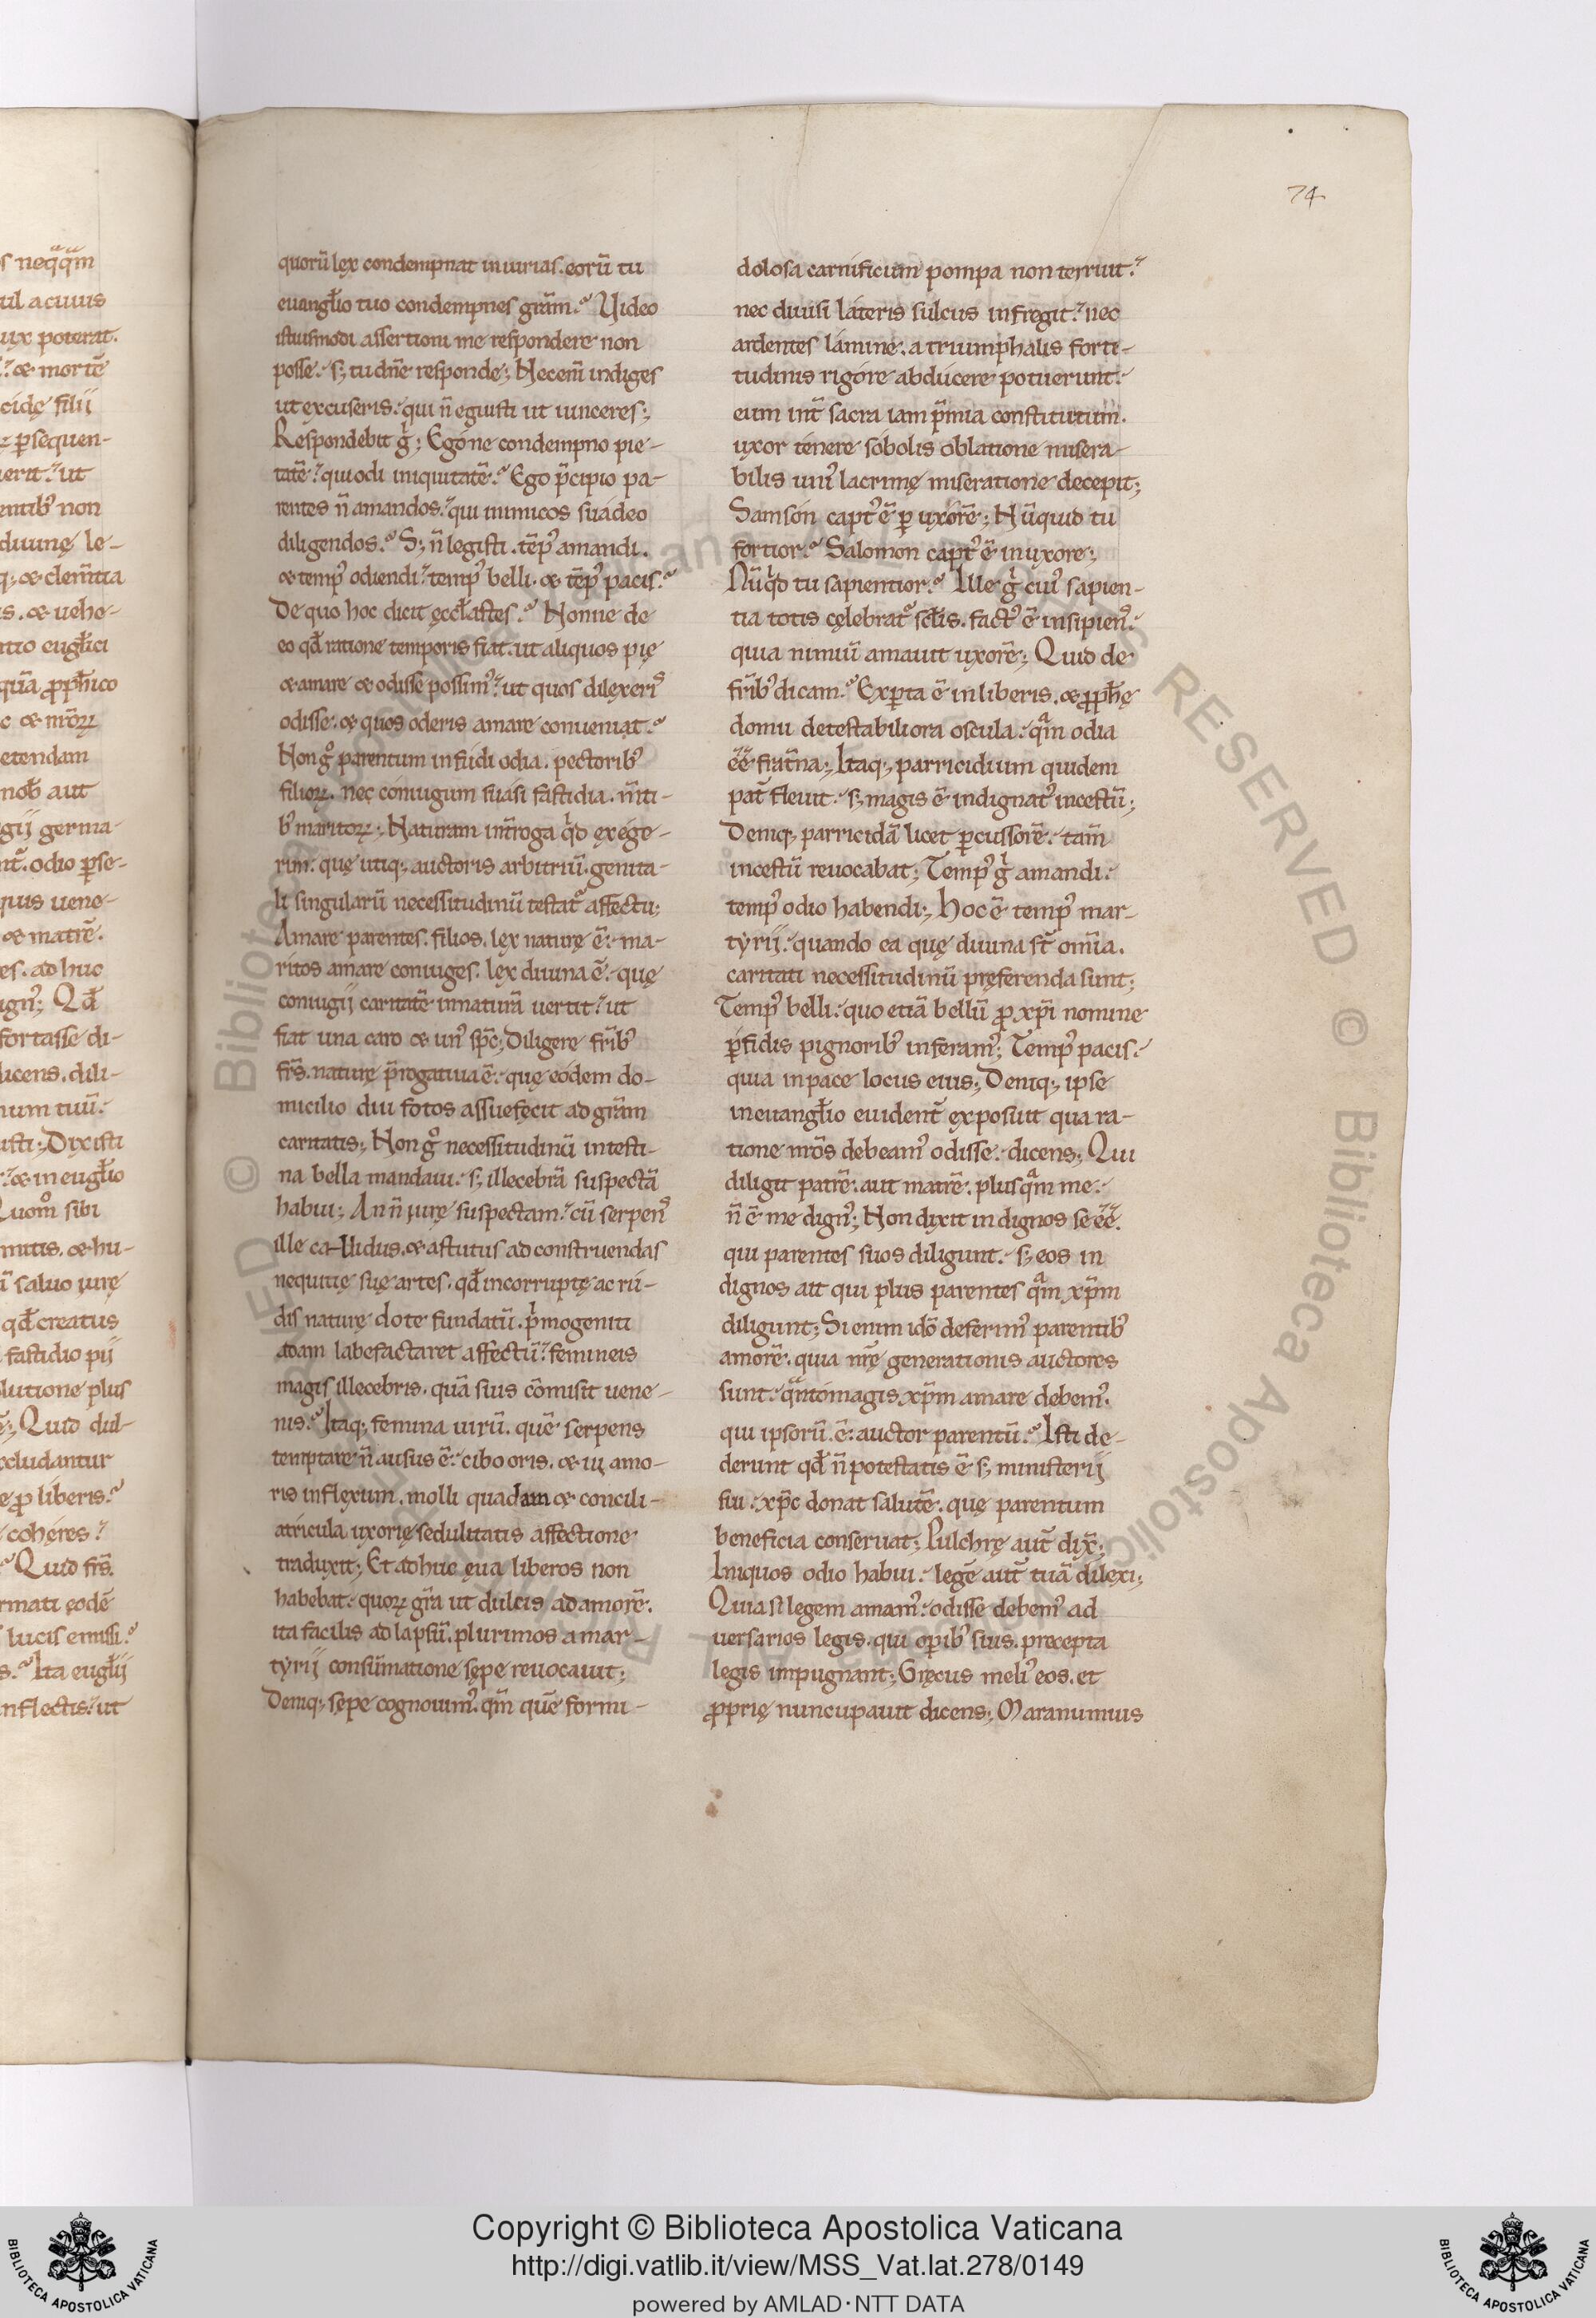 74
quorũ lex condempnat iniurias. eorũ tu
euangl̃io tuo condempnes grãm.? Video
istiusmodi assertioni me respondere non
posse. s; tu dñe responde; Nec eni᷒ indiges
ut excuseris. qui ñ eguisti ut uinceres;
Respondebit gͥ; Egone condempno pie-
tatẽ? qui odi iniquitatẽ.? Ego p̃cipio pa-
rentes ñ amandos.? qui inimicos suadeo
diligendos.? S; ñ legisti. tẽp᷒ amandi.
& temp᷒ odiendi? temp᷒ belli. & tẽp᷒ pacis.?
De quo hoc dicit ęccl̃astes.? Nonne de
eo qđ ratione temporis fiat. ut aliquos pię
& amare & odisse possim᷒? ut quos dilexeri᷒
odisse. & quos oderis amare conueniat.?
Non gͦ parentum infudi odia. pectorib᷒
filioꝝ. nec coniugum suasi fastidia. m̃ti-
b᷒ maritoꝝ; Naturam int̃roga qͥd exege-
rim. quę utiq; auctoris arbitriũ. genita-
li singularũ necessitudinũ testat᷒ affectu;
Amare parentes. filios. lex naturę ẽ. ma-
ritos amare coniuges. lex diuina ẽ. quę
coniugij caritatẽ in naturã uertit? ut
fiat una caro & un᷒ sp̃c; Diligere fr̃ib᷒
fr̃s. naturę p̃rogatiua ẽ. quę eodem do-
micilio diu fotos assuefecit ad grãm
caritatis; Non gͦ necessitudinũ intesti-
na bella mandaui. s; illecebrã suspectã
habui; An ñ iurę suspectam.? cũ serpen᷒
ille ca-llidus. & astutus ad construendas
nequitię suę artes. qđ incorruptę ac ru-
dis naturę dote fundatũ. pͥmogeniti
adam labefactaret affectũ? femineis
magis illecebris. quã suis cõmisit uene-
nis.? Itaq; femina uirũ. quẽ serpens
temptare ñ ausus ẽ. cibo oris. & iu᷒ amo-
ris inflexum. molli quadam & concili-
atricula uxorię sedulitatis affectione
traduxit; Et adhuc ęua liberos non
habebat. quoꝝ gr̃a ut dulcis ad amorẽ.
ita facilis ad lapsũ. plurimos a mar-
tyrij consũmatione sępe reuocauit;
Deniq; sępe cognouim᷒. qm̃ quẽ formi-
dolosa carnificum pompa non terruit.?
nec diuisi lateris sulcus infregit? nec
ardentes lamine. a triumphalis forti-
tudinis rigore abducere potuerunt.
eum int̃ sacra iam p̃mia constitutum.
uxor tenere sobolis oblatione misera-
bilis uni᷒ lacrimę miseratione decepit;
Samson capt᷒ ẽ ꝑ uxorẽ; Nũquid tu
fortior.? Salomon capt᷒ ẽ in uxore;
Nũqͥd tu sapientior.? Ille gͥ cui᷒ sapien-
tia totis cęlebrat᷒ scl̃is. fact᷒ ẽ insipien᷒.
quia nimiũ amauit uxorẽ; Quid de
fr̃ib᷒ dicam.? Exꝑta ẽ in liberis. & ꝓph̃ę
domu detestabiliora oscula. qᷓm odia
ẽẽ frat̃na; Itaq; parricidium quidem
pat̃ fleuit. s; magis ẽ indignat᷒ incestũ;
Deniq; parricidã licet ꝑcussorẽ. tam̃
incestũ reuocabat; Temp᷒ gͥ amandi.
temp᷒ odio habendi; Hoc ẽ temp᷒ mar-
tyrij. quando ea quę diuina st̃ om̃ia.
caritati necessitudinũ pręferenda sunt;
Temp᷒ belli. quo etiã bellũ ꝓ xp̃i nomine
ꝑfidis pignorib᷒ inferam᷒; Temp᷒ pacis.
quia in pace locus eius; Deniq; ipse
in euangl̃io euident̃ exposuit qua ra-
tione nr̃os debeam᷒ odisse. dicens; Qui
diligit patrẽ. aut matrẽ. plusqᷓm me.
ñ ẽ me dign᷒; Non dixit indignos se ẽẽ.
qui parentes suos diligunt. s; eos in
dignos ait qui plus parentes qᷓm xp̃m
diligunt; Si enim idõ deferim᷒ parentib᷒
amorẽ. quia nr̃ę generationis auctores
sunt. qᷓnto magis xp̃m amare debem᷒.
qui ipsorũ. ẽ. auctor parentũ.? Isti de-
derunt qđ ñ potestatis ẽ s; ministerij
sui. xp̃c donat salutẽ. quę parentum
beneficia conseruat; Pulchrę aut̃ dix̃;
Iniquos odio habui. legẽ aut̃ tuã dilexi;
Quia si legem amam᷒. odisse debem᷒ ad
uersarios legis. qui oꝑib᷒ suis. precepta
legis impugnant; Gręcus meli᷒ eos. et
ꝓprię nuncupauit dicens; Maranumius
Copyright © Biblioteca Apostolica Vaticana
http://digi.vatlib.it/view/MSS_Vat.lat.278/0149
powered by AMLAD·NTT DATA